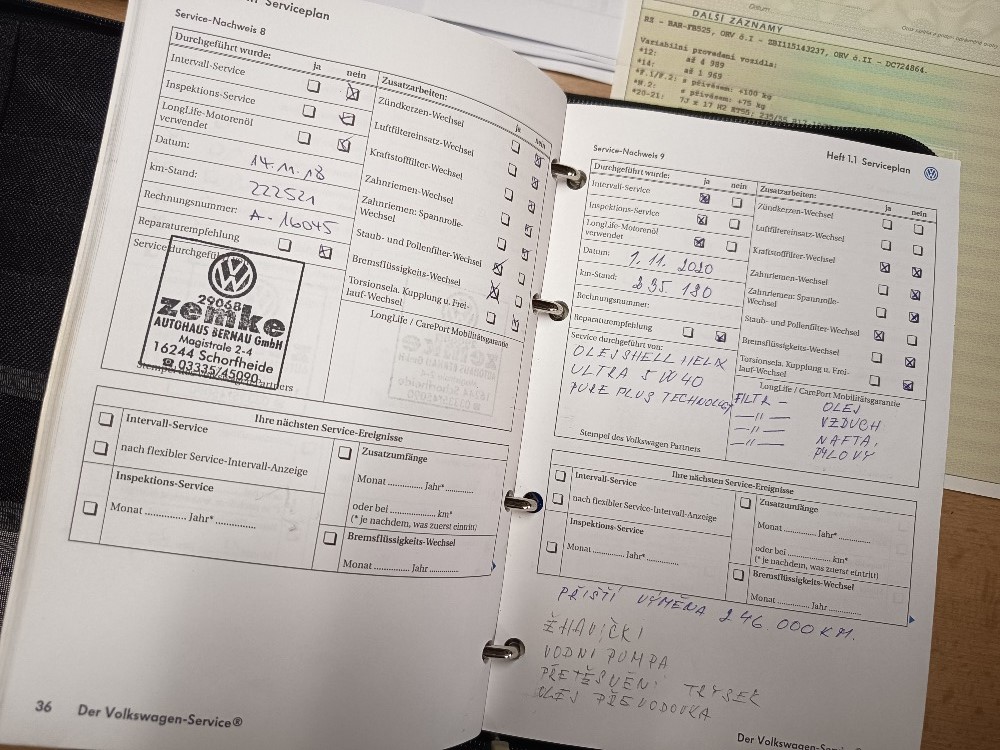 Serviceplan
Service-Nachweis 8
Durchgeführt wurde:
ja
nein
Zusatzarbeiten:
ja
nein
Intervall-Service
Inspektions-Service
LongLife-Motorenöl
verwendet
Datum:
14.11.18
km-Stand:
222521
Rechnungsnummer:
A-16045
Reparaturempfehlung
Zündkerzen-Wechsel
Luftfiltereinsatz-Wechsel
Kraftstofffilter-Wechsel
Zahnriemen-Wechsel
Zahnriemen: Spannrolle-
Wechsel
Staub- und Pollenfilter-Wechsel
Bremsflüssigkeits-Wechsel
Torsionsela. Kupplung u. Frei-
lauf-Wechsel
LongLife / CarePort Mobilitätsgarantie
29068
zemke
AUTOHAUS BERNAU GmbH
Magistrale 2-4
16244 Schorfheide
☎ 03335/45090
Ihre nächsten Service-Ereignisse
Intervall-Service
nach flexibler Service-Intervall-Anzeige
Inspektions-Service
Monat .............. Jahr* ..............
Zusatzumfänge
Monat .............. Jahr* ..............
oder bei .................. km*
(* je nachdem, was zuerst eintritt)
Bremsflüssigkeits-Wechsel
Monat .............. Jahr ..............
36 Der Volkswagen-Service®
Heft 1.1 Serviceplan
Service-Nachweis 9
Durchgeführt wurde:
ja
nein
Zusatzarbeiten:
ja
nein
Intervall-Service
Inspektions-Service
LongLife-Motorenöl
verwendet
Datum:
1.11.2020
km-Stand:
235 190
Rechnungsnummer:
Reparaturempfehlung
Service durchgeführt von:
OLEJ SHELL HELIX
ULTRA 5W40
PURE PLUS TECHNOLOGY
Stempel des Volkswagen Partners
Zündkerzen-Wechsel
Luftfiltereinsatz-Wechsel
Kraftstofffilter-Wechsel
Zahnriemen-Wechsel
Zahnriemen: Spannrolle-
Wechsel
Staub- und Pollenfilter-Wechsel
Bremsflüssigkeits-Wechsel
Torsionsela. Kupplung u. Frei-
lauf-Wechsel
LongLife / CarePort Mobilitätsgarantie
FILTR - OLEJ
—〃— VZDUCH
—〃— NAFTA
—〃— PYLOVÝ
Ihre nächsten Service-Ereignisse
Intervall-Service
nach flexibler Service-Intervall-Anzeige
Inspektions-Service
Monat .............. Jahr* ..............
Zusatzumfänge
Monat .............. Jahr* ..............
oder bei .................. km*
(* je nachdem, was zuerst eintritt)
Bremsflüssigkeits-Wechsel
Monat .............. Jahr ..............
PŘÍŠTÍ VÝMĚNA 246 000 KM.
ŽHAVIČKI
VODNÍ PUMPA
PŘETĚSNĚNÍ TRYSEK
OLEJ PŘEVODOVKA
Der Volkswagen-Service®
Datum
DALŠÍ ZÁZNAMY
RZ - BAR-FB525, ORV č.I - SBI115143237, ORV č.II - DC724864.
Variabilní provedení vozidla:
*12: až 4 989
*14: až 1 969
s přívěsem: +100 kg
s přívěsem: +75 kg
*20-21: 7J x 17 H2 ET55; 235/55 R17